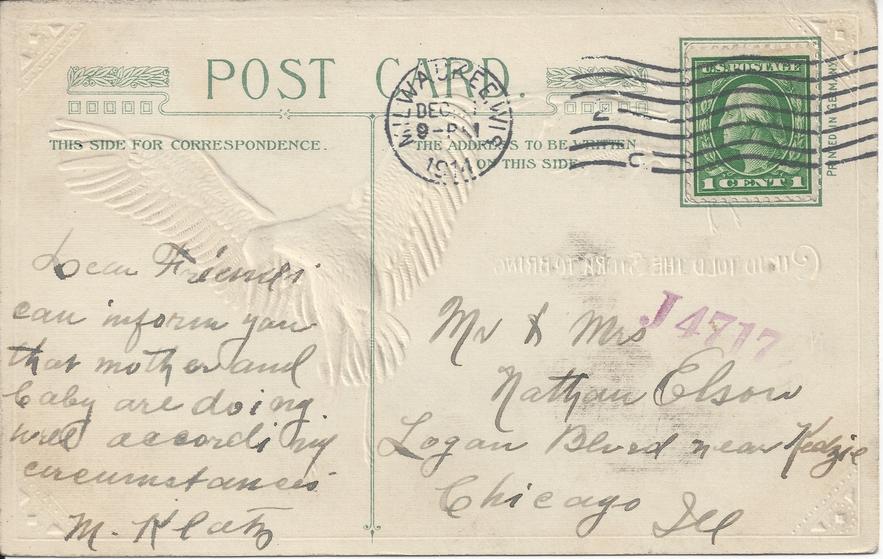 POST CARD.
THIS SIDE FOR CORRESPONDENCE.
THE ADDRESS TO BE WRITTEN
ON THIS SIDE
MILWAUKEE, WIS
DEC
9-PM
1911
2
C
U.S. POSTAGE
1 CENT 1
PRINTED IN GERMANY
CUPID TOLD THE STORK TO BRING
Dear Friends
can inform you
that mother and
baby are doing
well according
circumstances
M. Klatz
J4717
Mr & Mrs
Nathan Elson
Logan Blvrd near Kedzie
Chicago Ill